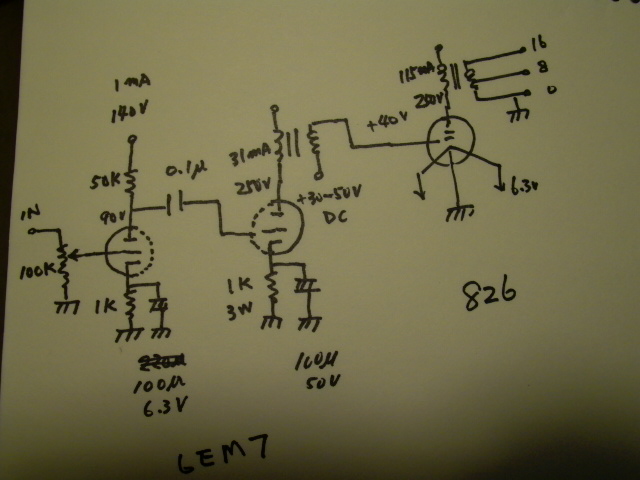 1mA
140V
50K
0.1μ
90V
IN
100K
1K
100μ
6.3V
6EM7
31mA
250V
+30-50V
DC
1K
3W
100μ
50V
+40V
115mA
250V
16
8
0
6.3V
826